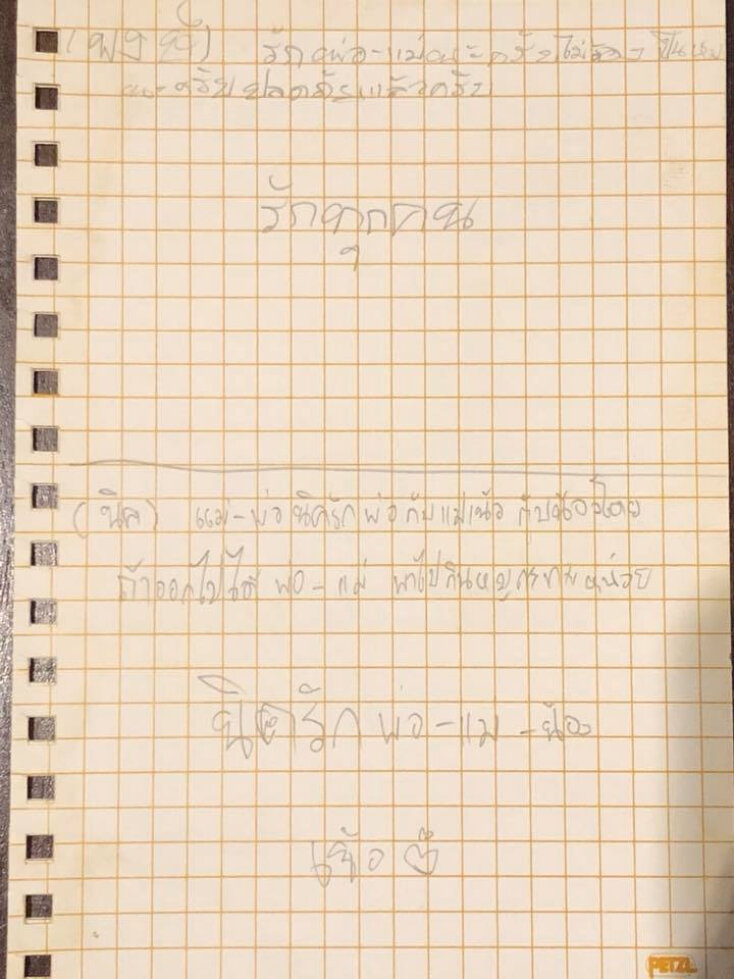 (พงษ์) รักพ่อ-แม่นะครับไม่ต้อง เป็นห่วง
นะครับปลอดภัยแล้วครับ
รักทุกคน
(นิค) แม่-พ่อ นิครัก พ่อ กับ แม่เน้อ กับน้องโตย
ถ้าออกไปได้ พ่อ - แม่ พาไปกินหมูกระทะหน่อย
นิครัก พ่อ - แม่ - น้อง
เน้อ
PETZL